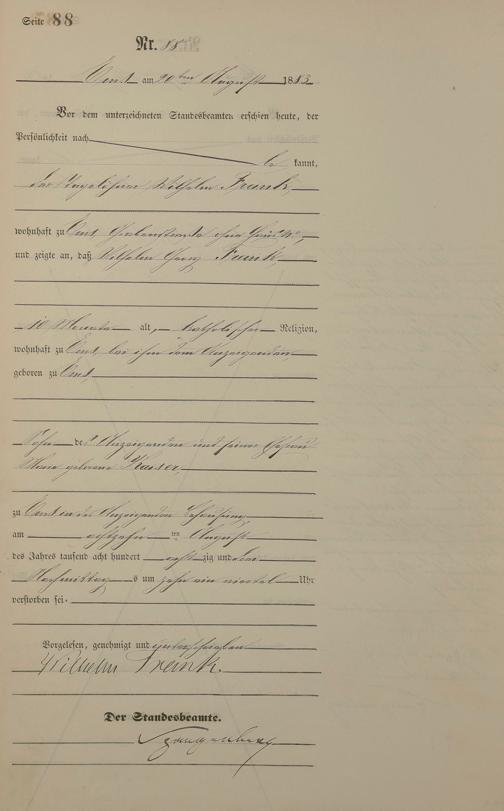 Seite 88
Nr. 88
Ems am 20ten August 1883
Vor dem unterzeichneten Standesbeamten erschien heute, der
Persönlichkeit nach
be kannt,
der Tagelöhner Wilhelm Frank,
wohnhaft zu Ems
und zeigte an, daß Wilhelm Georg Frank,
10 Monate alt, katholischer Religion,
wohnhaft zu Ems, bei ihm dem Anzeigenden
geboren zu Ems
Sohn des Anzeigenden und seiner Ehefrau
Maria geborene Kaiser,
zu Ems in des Anzeigenden Behausung
am achtzehn ten August
des Jahres tausend acht hundert acht zig und drei
Nachmittag s um zehn ein viertel Uhr
verstorben sei.
Vorgelesen, genehmigt und unterschrieben
Wilhelm Frank.
Der Standesbeamte.